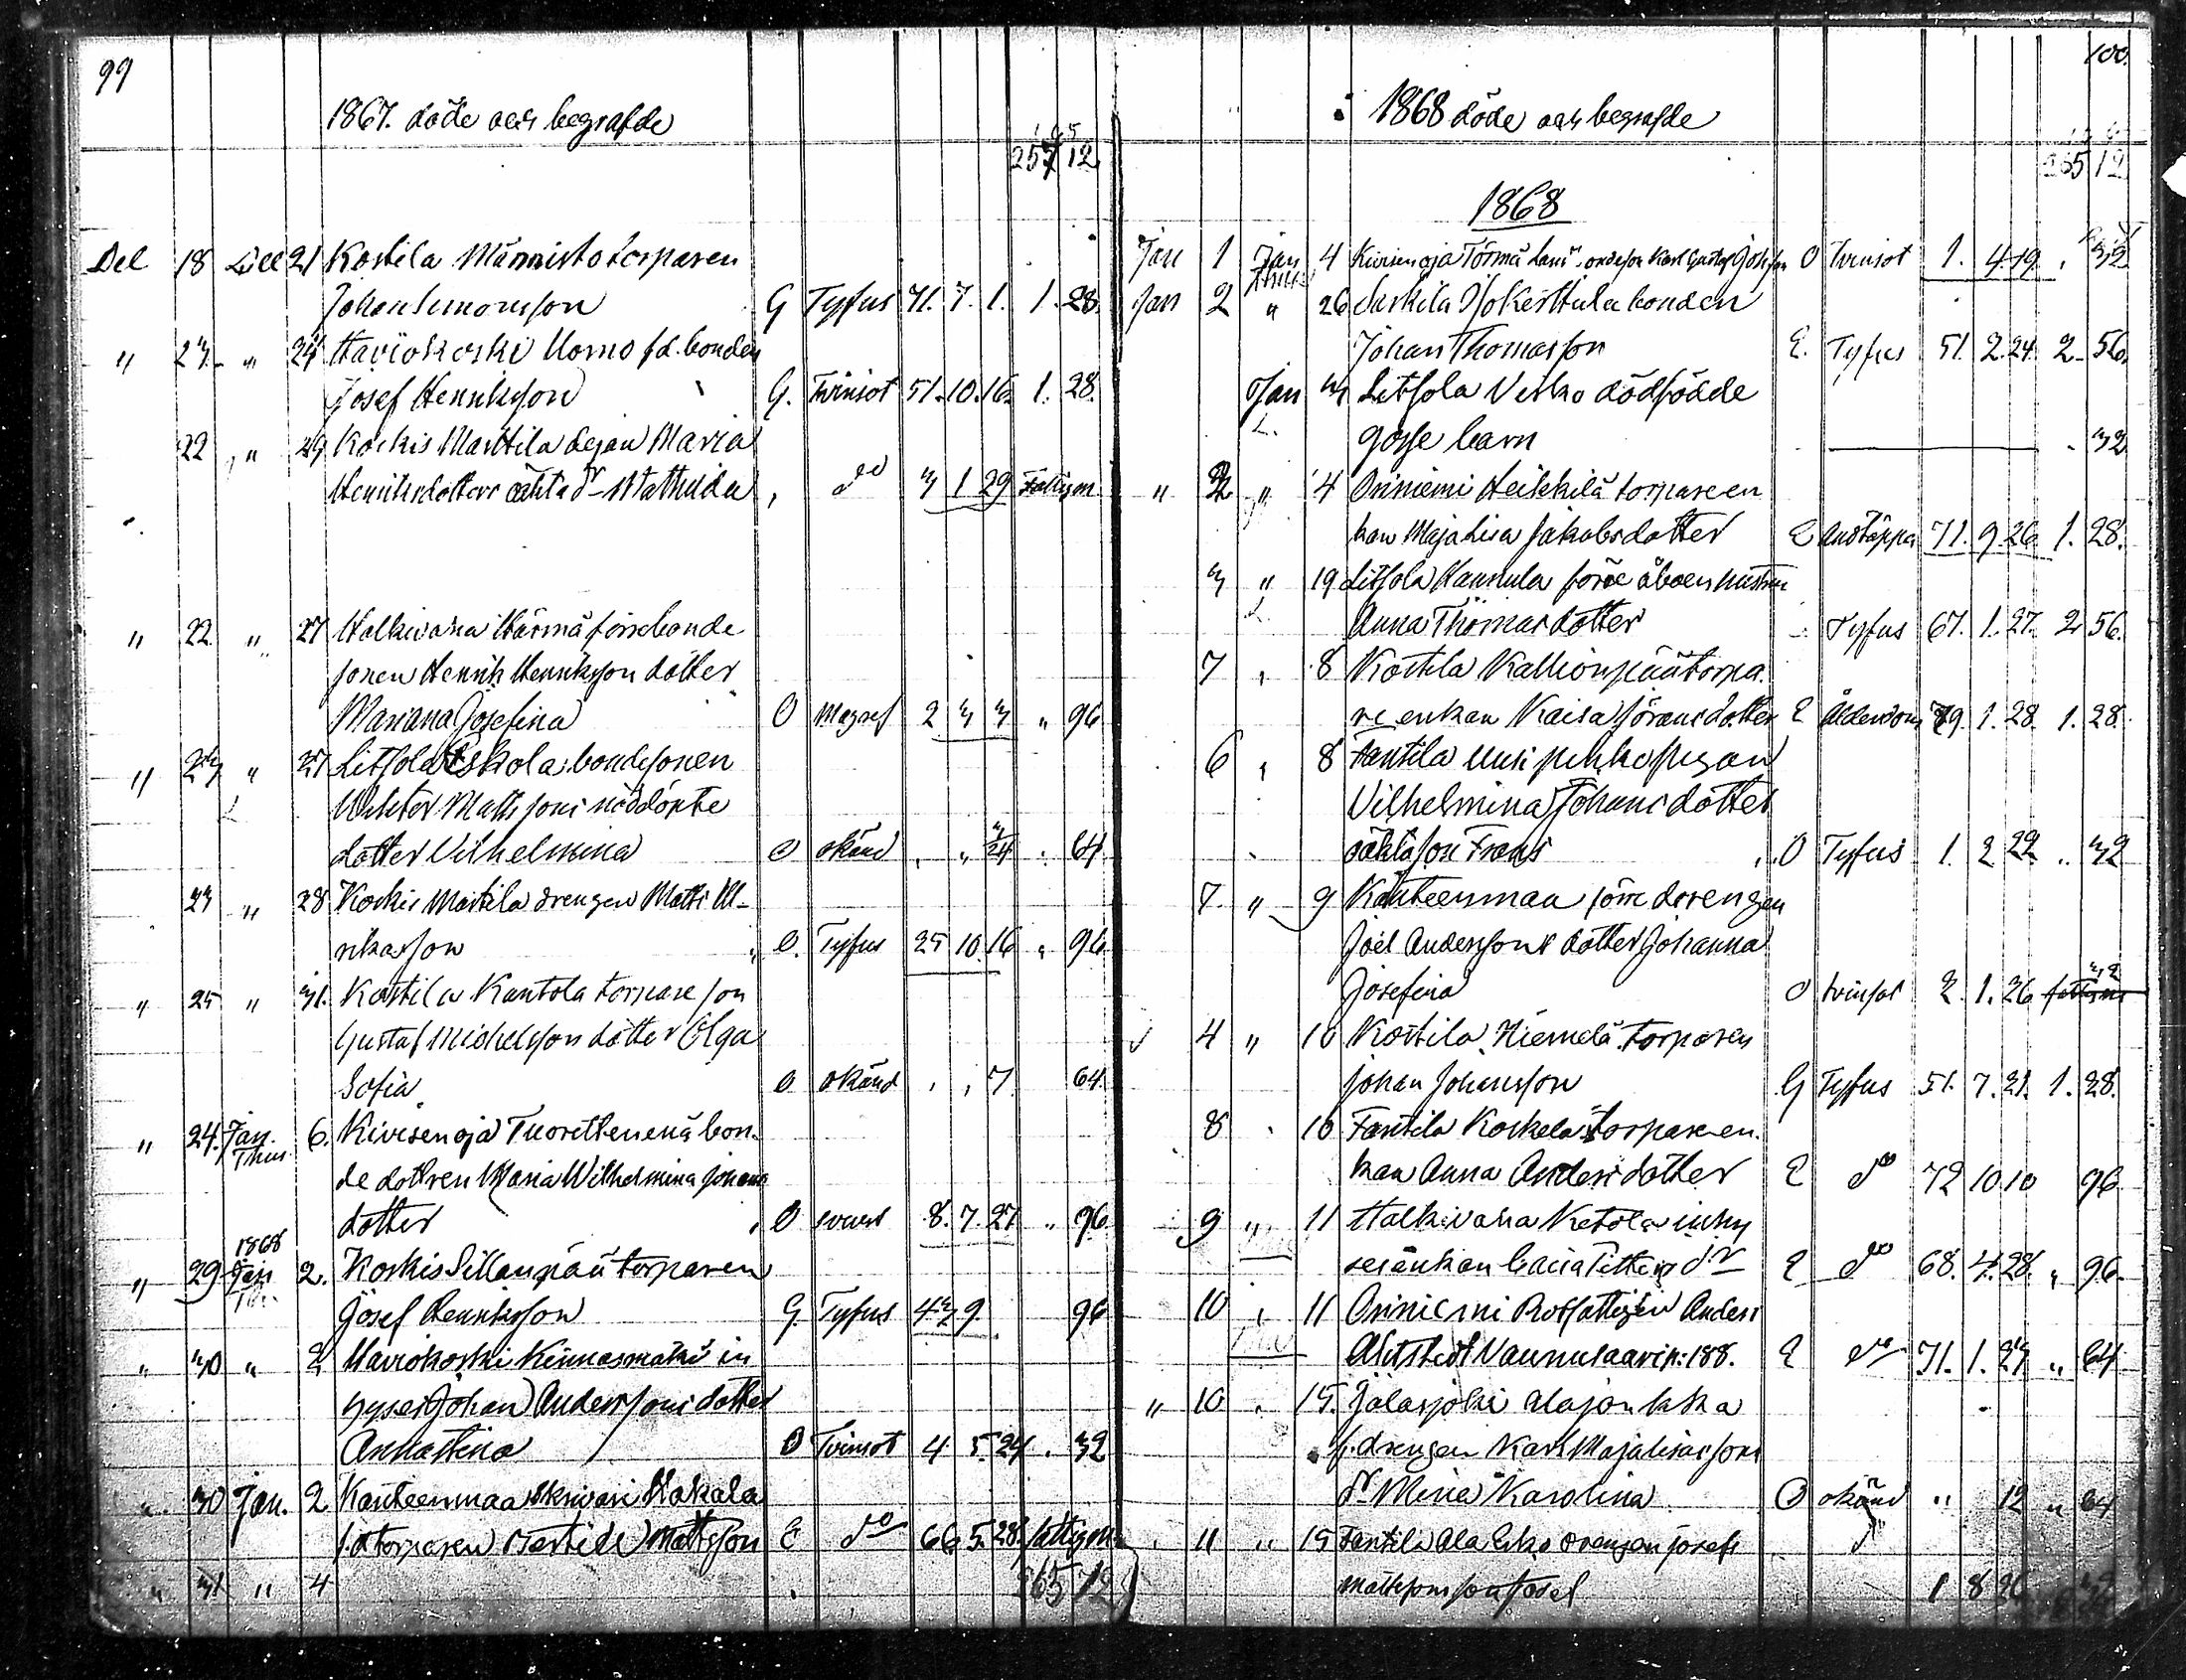 99
1867. döde och begrafde
257 12
Dec 18 Dec 21 Kostila Männisto torparen
Johan Simonsson G Tyfus 71. 7. 1. 1. 28.
" 23 " 24 Haviokoski Uomo fd. bonden
Josef Henriksson G. Tvinsot 51. 10. 16. 1. 28.
22 " 29 Koskis Marttila pigan Maria
Henriksdotters oäkta dr Mathilda do 3 1 29 Fattigm.
" 22 " 27 Halkivaha Härmä förre bonde
sonen Henrik Henriksson dotter
Mariana Josefina O Magref 2 3 3 " 96
" 23 " 27 Letsola Eskola bondesonen
Viktor Mattssons nöddöpte
dotter Vilhelmina O okänd " 3/24 64
23 " 28 Koskis Martila drengen Matts Ul-
rikasson O. Tyfus 25 10 16 " 96
" 25 " 31. Kostila Kantola torpare son
Gustaf Michelsson dotter Olga
Sofia O okänd 7 64
" 24. Jan. 6. Kivisenoja Tuorettenenä bon-
de dottren Maria Wilhelmina Johans
dotter O 8. 7. 27 " 96
1868
" 29 Jan 2. Koskis Sillanpää torparen
Josef Henriksson G. Tyfus 43 9. 96
" 30 " 2 Haviokoski Kinnasmäki in
hyses Johan Anderssons dotter
Annastina O Tvinsot 4 5. 24 . 32
" 30 Jan. 2 Kanteenmaa Skrivari Hakala
f.d torparen Bertil Mattsson E do 66 5. 28. fattigm.
" 31 " 4
265 12
100.
1868 döde och begrafde
265 12
1868
Jan 1 Jan 4 Kivisenoja Törmä Karl Gustaf Johsson O Tvinsot 1. 4. 19. . 32
Jan 2 " 26 Sarkila Jokisttula bonden
Johan Thomasson E. Tyfus 51. 2. 24. 2. 56.
Jan 3 Letsola Verho dödfödde
gosse barn . 32
" 2 " 4 Oriniemi Heikkilä torpareen
kan Maja Lisa Jakobsdotter E Andtäppa 71. 9. 26. 1. 28.
3 " 19 Letsola Hannula förre åboens hustru
Anna Thomasdotter Tyfus 67. 1. 27. 2 56.
7 " 8 Kostila Kallionpää torpa
re enkan Kaisa Jöransdotter E Ålderdom 79. 1. 28. 1. 28.
6 " 8 Tantila Uusi pihko pigan
Vilhelmina Johansdotter
oäkta son Frans O Tyfus 1. 2 22 .. 32
7. " 9 Kanteenmaa förre drengen
Joel Anderssons dotter Johanna
Josefina O tvinsot 2. 1. 26 fattigm 32
4 " 10 Kostila Niemelä torparen
Johan Johansson G Tyfus 51. 7. 21. 1. 28.
8 " 10 Tantila Koskela torpareen
kan Anna Andersdotter E do 72 10 10 96
9 " 11 Halkivaha Ketola inhy
sesänkan Caisa Petters dr E do 68. 4. 28. " 96.
10 " 11 Oriniemi Rotfattigen Anders
Ahlstedt Vaunusaari n: 188. E do 71. 1. 23 " 64
" 10 " 15. Jalasjoki Alajoukka
f. drengen Karl Majalisassons
dr Mina Karolina O okänd " 12 " 64
11 " 15 Tantila Ala Esko drengen Josefs
Mattssons son Josef do 1 8 20